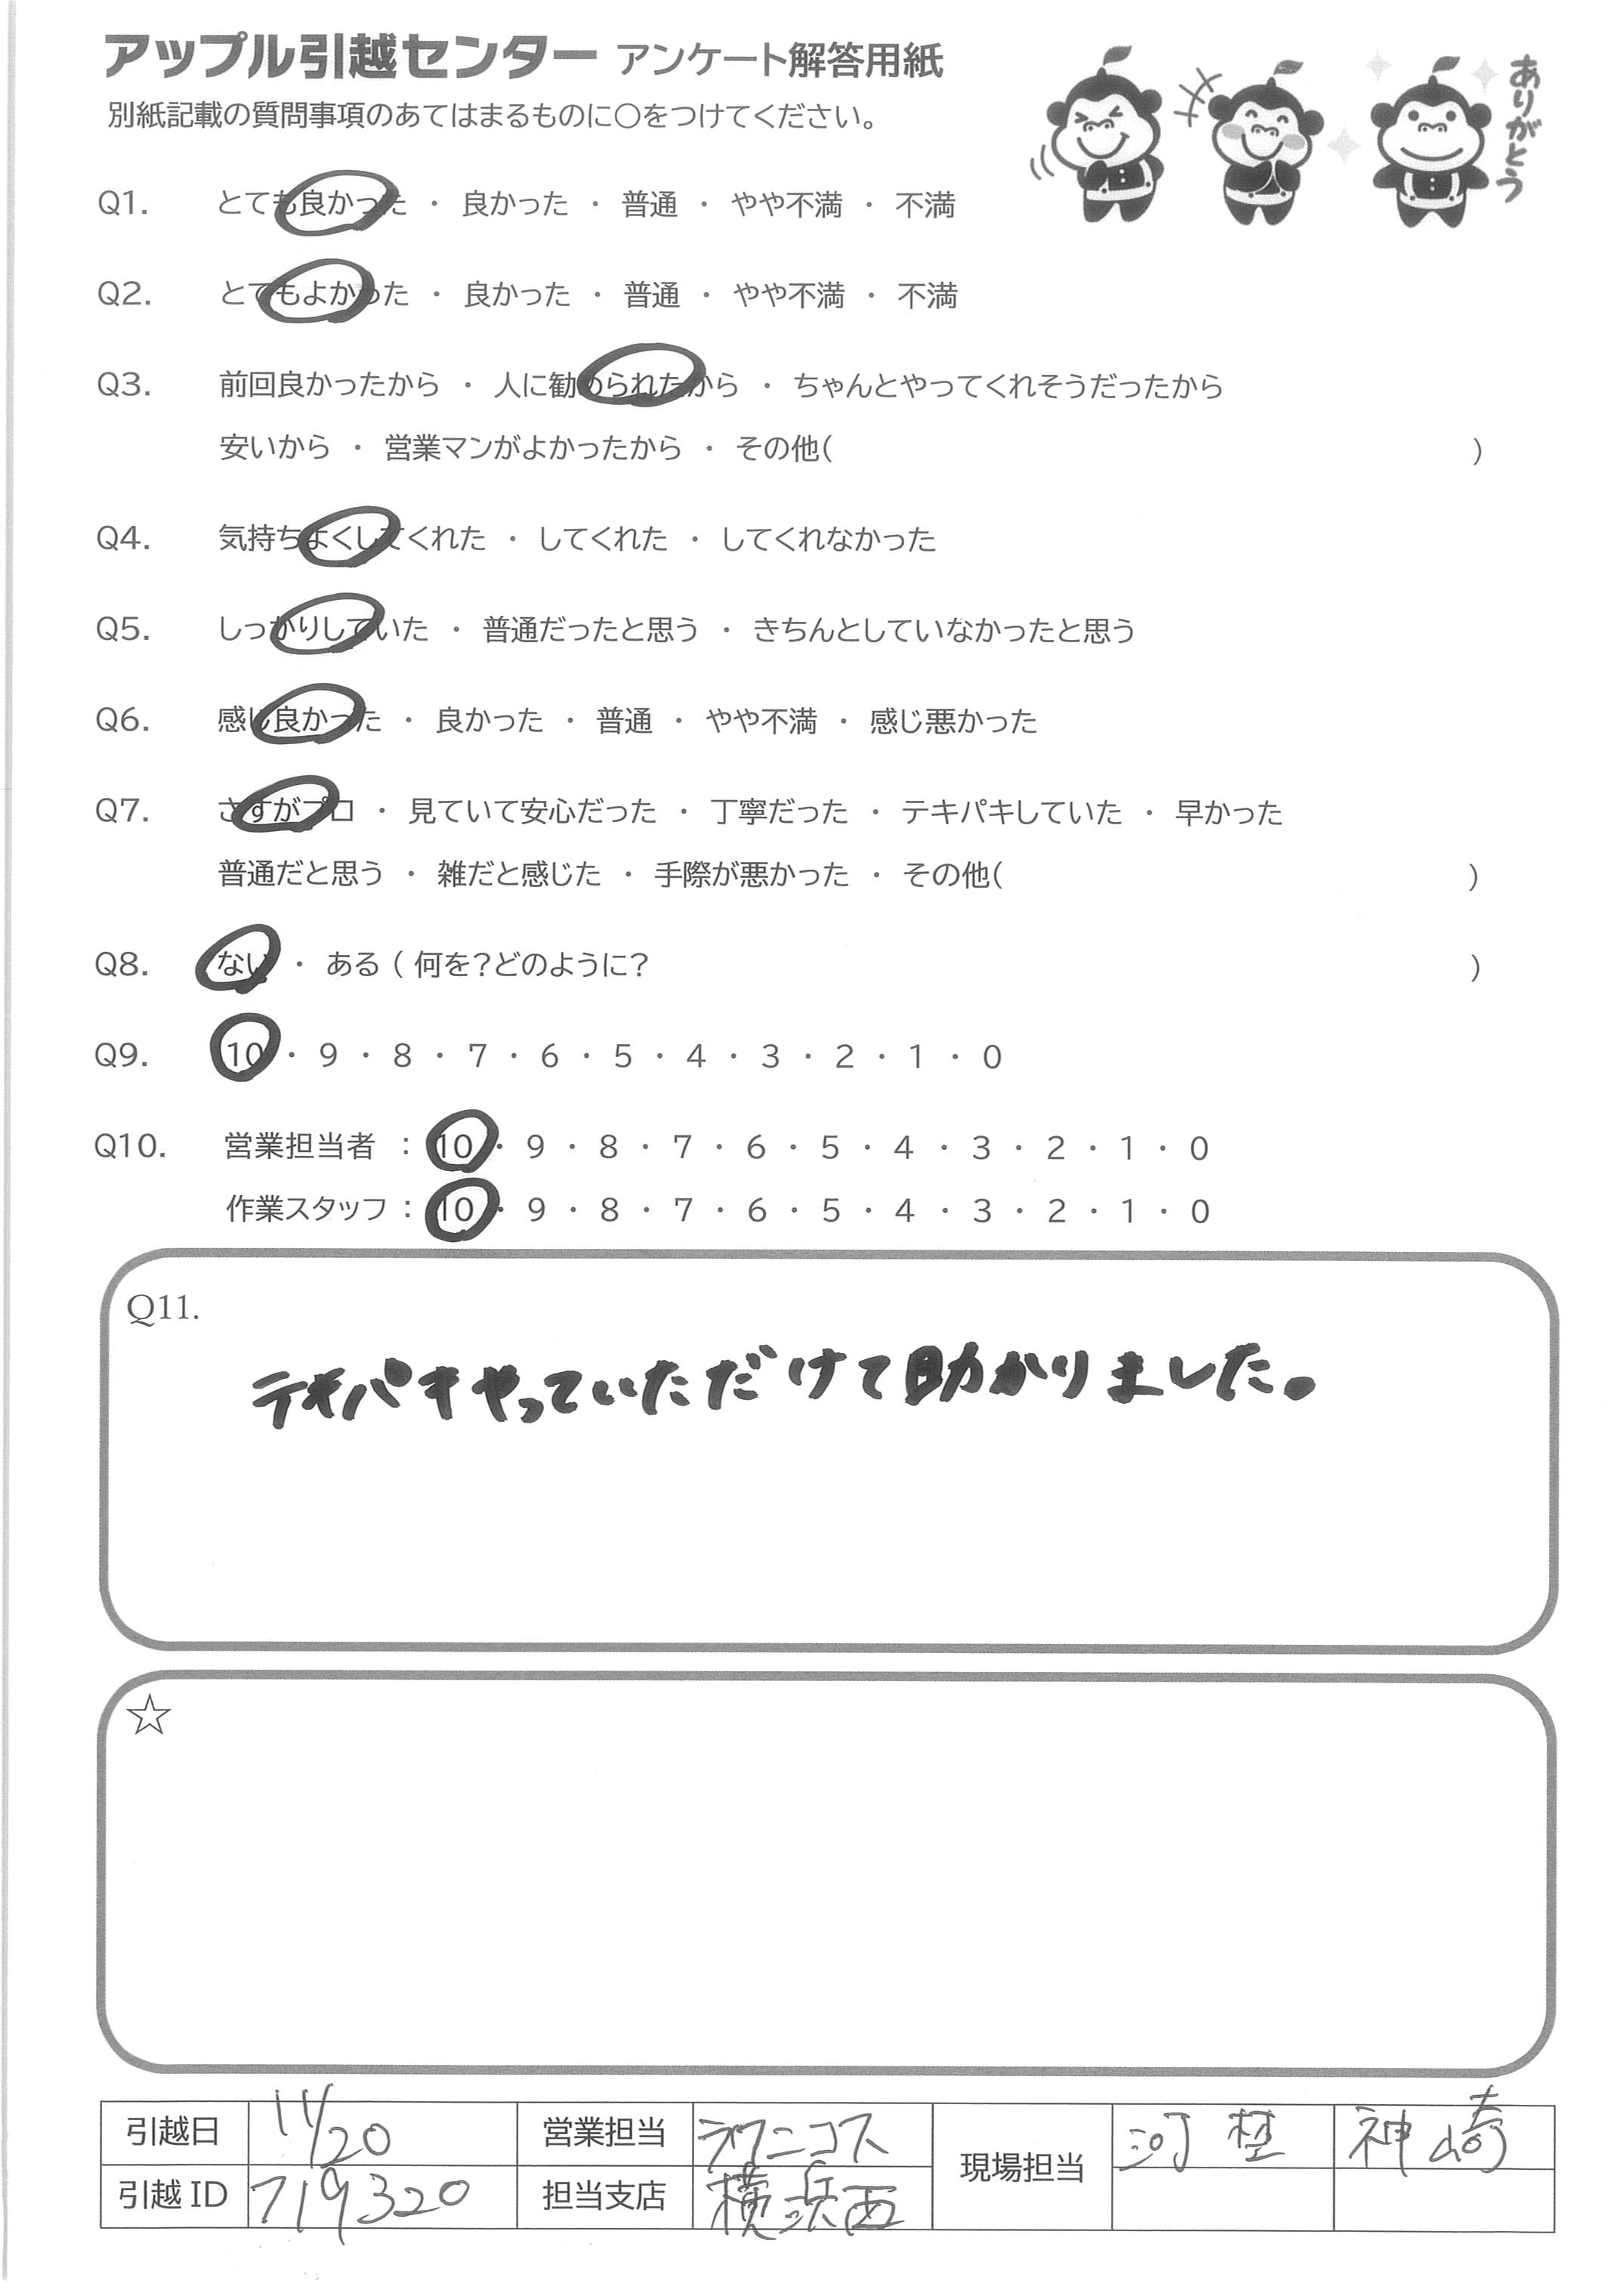 アップル引越センター アンケート解答用紙
ありがとう
別紙記載の質問事項のあてはまるものに○をつけてください。
Q1. とても良かった ・ 良かった ・ 普通 ・ やや不満 ・ 不満
Q2. とてもよかった ・ 良かった ・ 普通 ・ やや不満 ・ 不満
Q3. 前回良かったから ・ 人に勧められたから ・ ちゃんとやってくれそうだったから
安いから ・ 営業マンがよかったから ・ その他( )
Q4. 気持ちよくしてくれた ・ してくれた ・ してくれなかった
Q5. しっかりしていた ・ 普通だったと思う ・ きちんとしていなかったと思う
Q6. 感じ良かった ・ 良かった ・ 普通 ・ やや不満 ・ 感じ悪かった
Q7. さすがプロ ・ 見ていて安心だった ・ 丁寧だった ・ テキパキしていた ・ 早かった
普通だと思う ・ 雑だと感じた ・ 手際が悪かった ・ その他( )
Q8. ない ・ ある ( 何を?どのように? )
Q9. 10 ・ 9 ・ 8 ・ 7 ・ 6 ・ 5 ・ 4 ・ 3 ・ 2 ・ 1 ・ 0
Q10. 営業担当者 : 10 ・ 9 ・ 8 ・ 7 ・ 6 ・ 5 ・ 4 ・ 3 ・ 2 ・ 1 ・ 0
作業スタッフ : 10 ・ 9 ・ 8 ・ 7 ・ 6 ・ 5 ・ 4 ・ 3 ・ 2 ・ 1 ・ 0
Q11.
テキパキやっていただけて助かりました。
☆
引越日 11/20 営業担当 現場担当 神崎
引越ID 719320 担当支店 横浜西